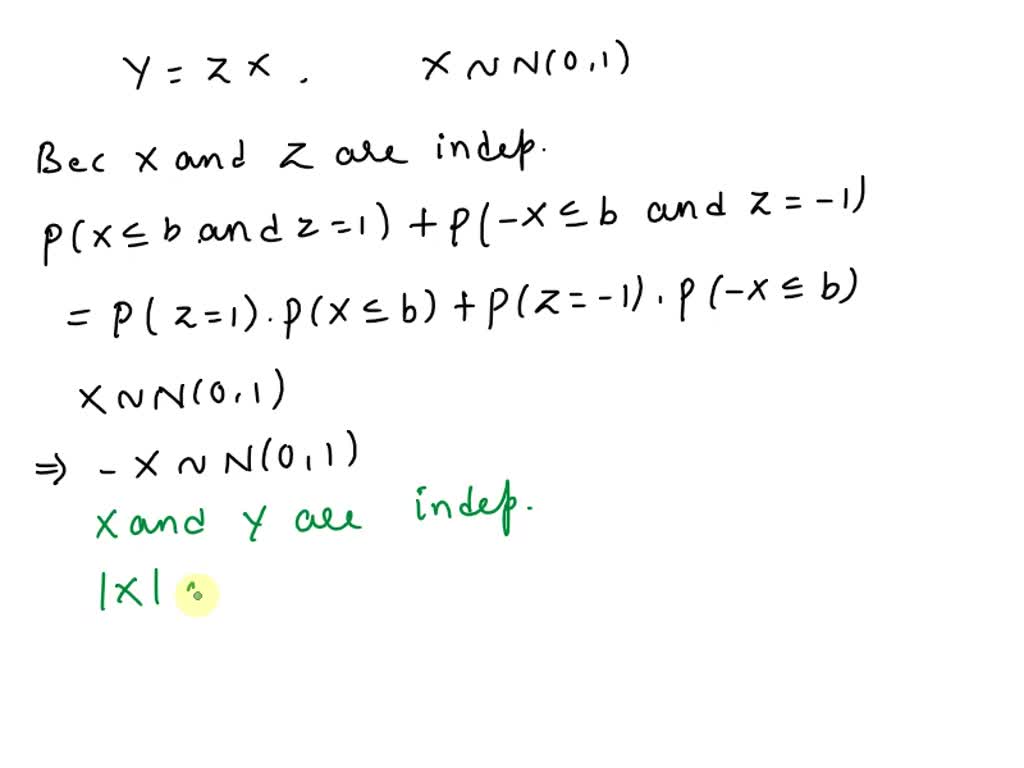 Y = Z X . X ~ N(0,1)
Bec X and Z are indep.
P(X ≤ b and Z = 1) + P(-X ≤ b and Z = -1)
= P(Z=1). P(X ≤ b) + P(Z = -1). P(-X ≤ b)
X ~ N(0,1)
⇒ - X ~ N(0,1)
X and Y are indep.
|X|